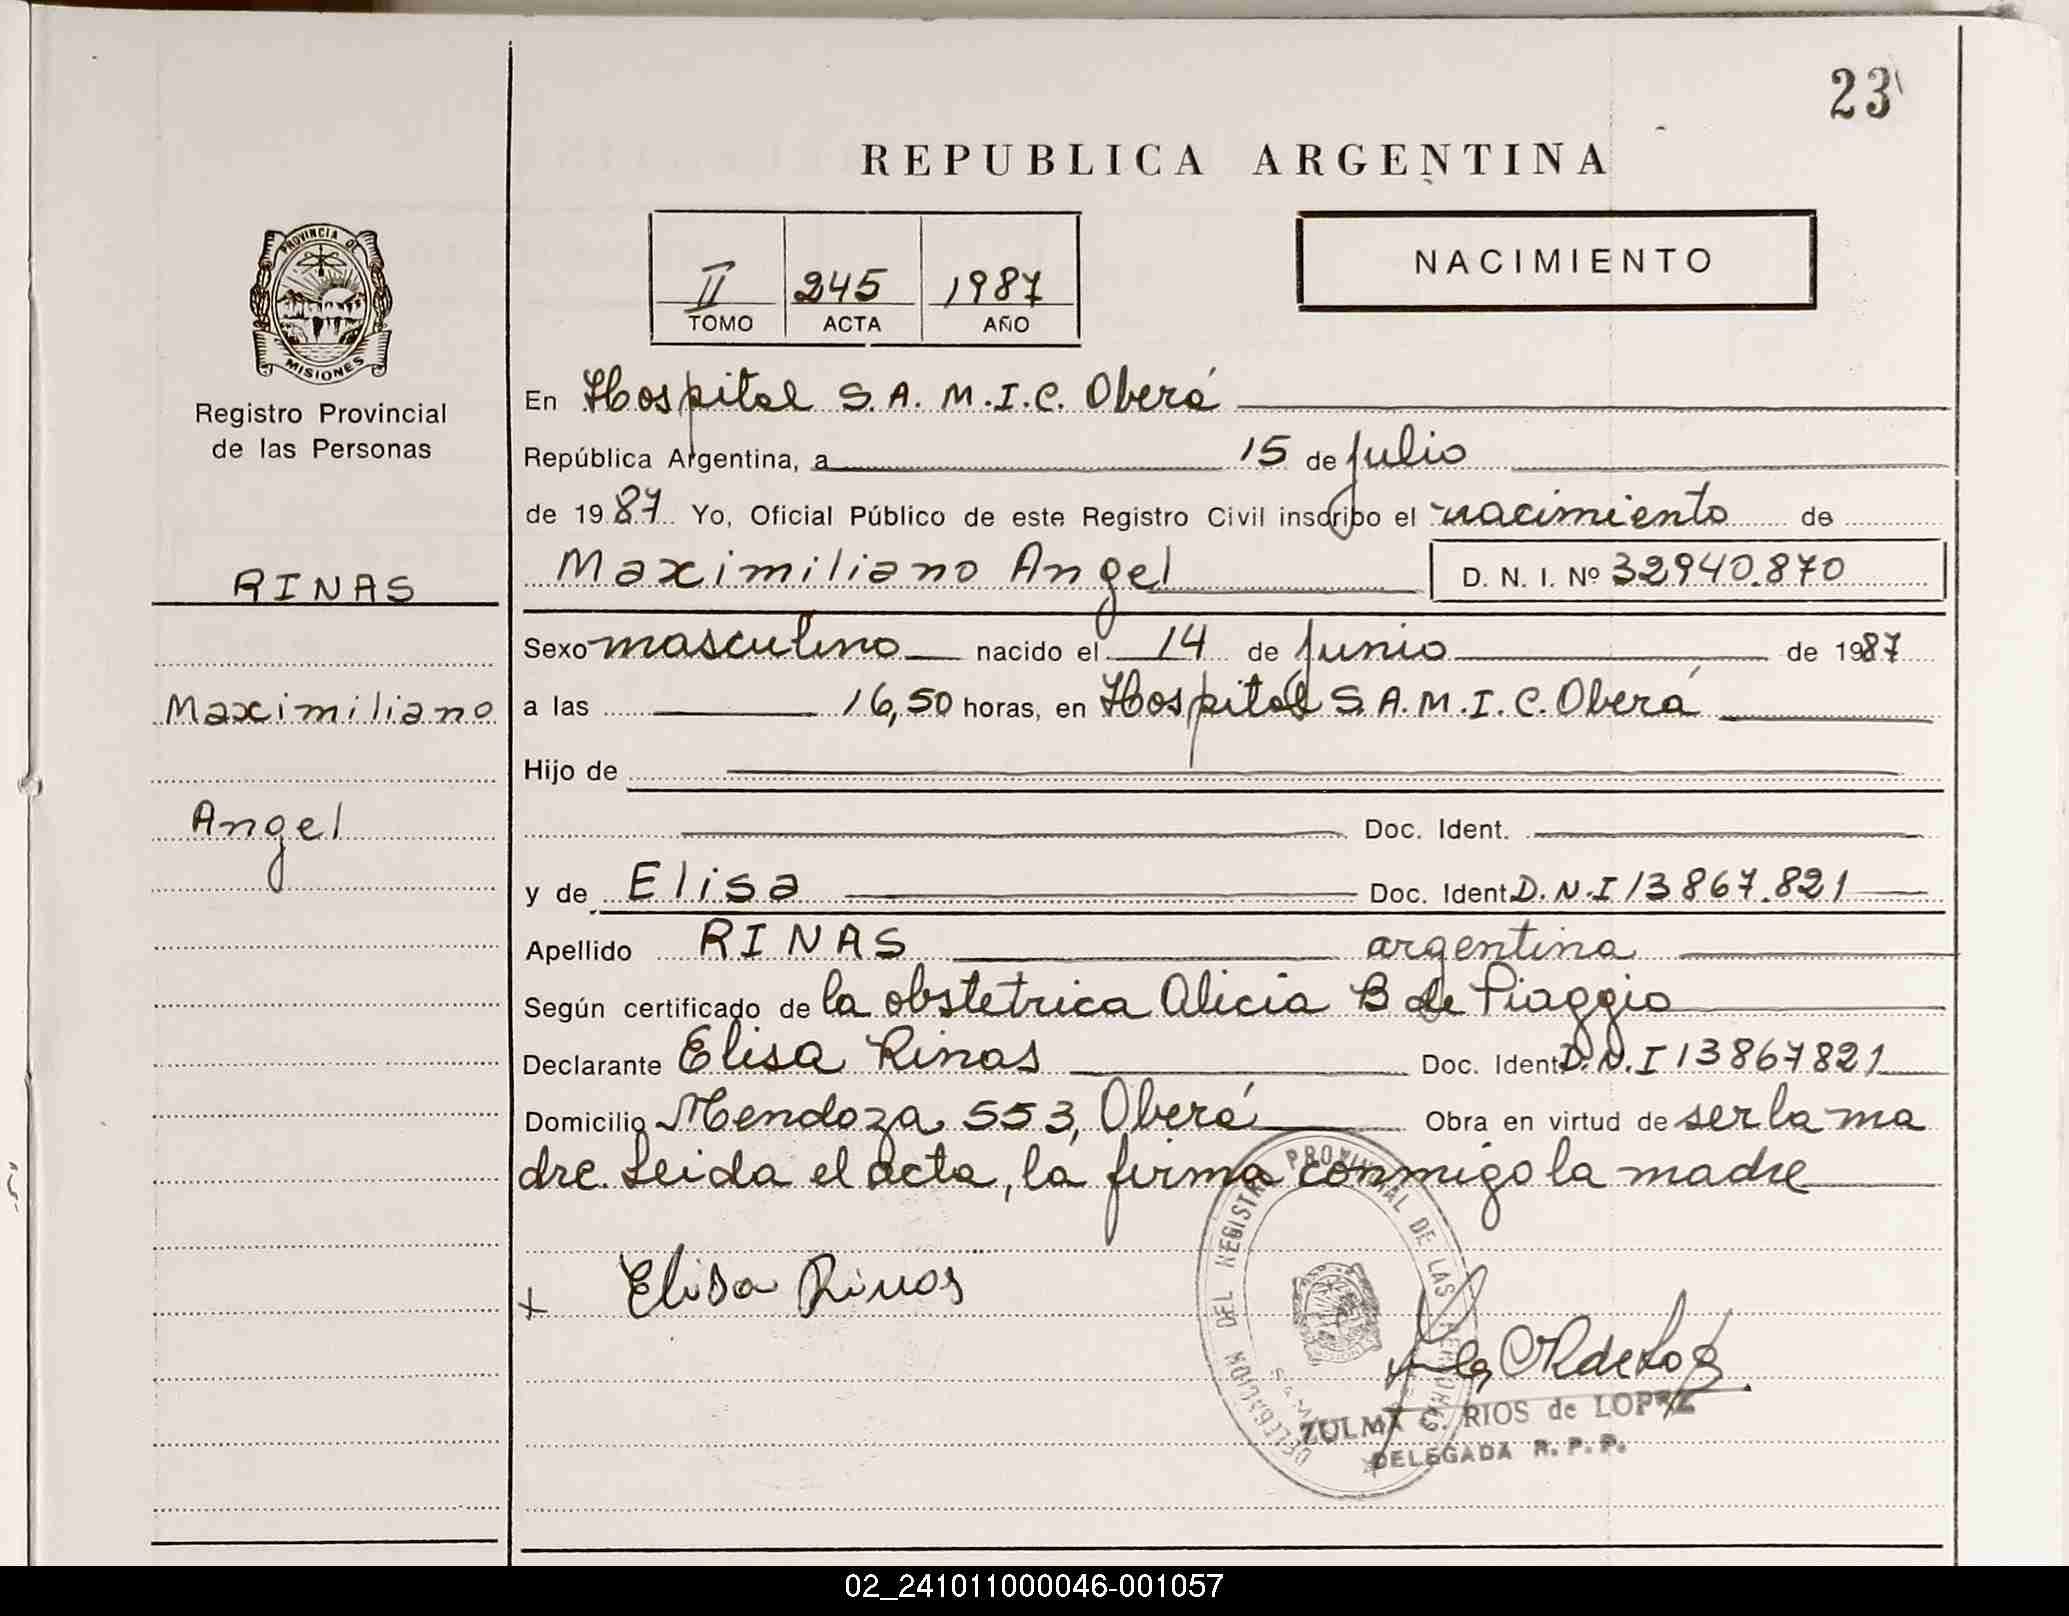 23
REPUBLICA ARGENTINA
PROVINCIA DE
MISIONES
Registro Provincial
de las Personas
II 245 1987
TOMO ACTA AÑO
NACIMIENTO
En Hospital S.A.M.I.C. Oberá
República Argentina, a 15 de julio
de 1987 Yo, Oficial Público de este Registro Civil inscribo el nacimiento de
RINAS
Maximiliano Angel D. N. I. Nº 32940.870
Sexo masculino nacido el 14 de junio de 1987
Maximiliano
a las 16,50 horas, en Hospital S.A.M.I.C. Oberá
Hijo de
Angel
Doc. Ident.
y de Elisa Doc. Ident. D.N.I 13867.821
Apellido RINAS argentina
Según certificado de la obstetrica Alicia B de Piaggio
Declarante Elisa Rinas Doc. Ident. D.N.I 13867821
Domicilio Mendoza 553, Oberá Obra en virtud de ser la ma
dre. Leida el acta, la firma conmigo la madre
DELEGACION DEL REGISTRO PROVINCIAL DE LAS PERSONAS
x Elisa Rinas
ZULMA C. RIOS de LOPEZ
DELEGADA R. P. P.
02_241011000046-001057